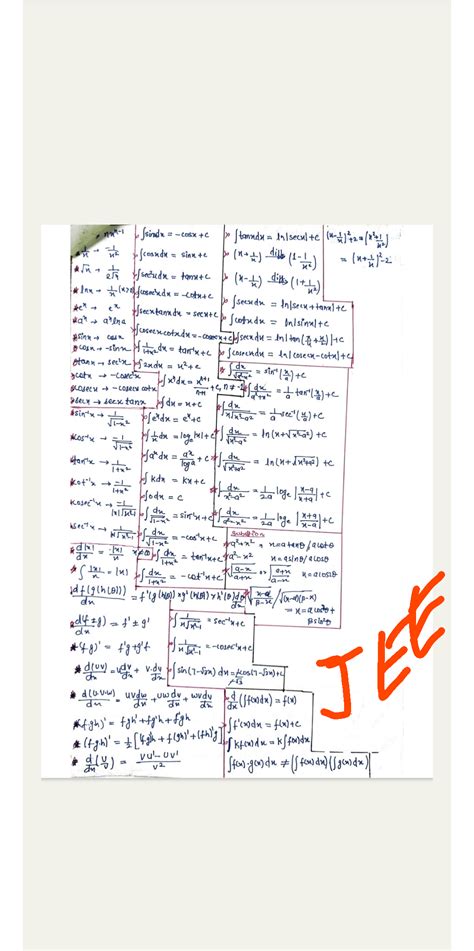 xⁿ → nxⁿ⁻¹
1/x → -1/x²
√x → 1/2√x
lnx → 1/x (x>0)
eˣ → eˣ
aˣ → aˣlna
sinx → cosx
cosx → -sinx
tanx → sec²x
cotx → -cosec²x
cosecx → -cosecx cotx
secx → secx tanx
sin⁻¹x → 1/√1-x²
cos⁻¹x → -1/√1-x²
tan⁻¹x → 1/1+x²
cot⁻¹x → -1/1+x²
cosec⁻¹x → -1/|x|√x²-1
sec⁻¹x → 1/|x|√x²-1
d|x|/dx = |x|/x x≠0
∫|x|/x = |x|
df(g(h(θ)))/dx = f'(g(h(θ)) × g'(h(θ)) × h'(θ) dθ/dx
d(f±g)/dx = f' ± g'
(f.g)' = f'g + g'f
d(uv)/dx = u dv/dx + v. du/dx
d(u.v.w)/dx = uv dw/dx + uw dv/dx + wv du/dx
(fgh)' = fgh' + fg'h + f'gh
(fgh)' = 1/2 [(fg)'h + f(gh)' + (fh)'g]
d/dx (u/v) = vu' - uv'/v²
∫sinxdx = -cosx+c
∫cosxdx = sinx+c
∫sec²xdx = tanx+c
∫cosec²xdx = -cotx+c
∫secxtanxdx = secx+c
∫cosecxcotxdx = -cosecx+c
∫1/1+x² dx = tan⁻¹x+c
∫2xdx = x²+c
∫xⁿdx = xⁿ⁺¹/n+1 +c, n≠-1
∫dx = x+c
∫eˣdx = eˣ+c
∫1/x dx = logₑ|x|+c
∫aˣdx = aˣ/loga +c
∫kdx = kx+c
∫0dx = c
∫dx/√1-x² = sin⁻¹x+c
∫dx/√1-x² = -cos⁻¹x+c
∫dx/1+x² = tan⁻¹x+c
∫dx/1+x² = -cot⁻¹x+c
∫1/x√x²-1 = sec⁻¹x+c
∫1/x√x²-1 = -cosec⁻¹x+c
∫sin(7-√2x) dx =
cos(7-√2x)+c
∫tanxdx = ln|secx|+c
(x+1/x) diff→ (1-1/x²)
(x-1/x) diff→ (1+1/x²)
∫secxdx = ln|secx+tanx|+c
∫cotxdx = ln|sinx|+c
∫secxdx = ln|tan(π/4+x/2)|+c
∫cosecxdx = ln|cosecx-cotx|+c
∫dx/√a²-x² = sin⁻¹(x/a)+c
∫dx/a²+x² = 1/a tan⁻¹(x/a)+c
∫dx/x√x²-a² = 1/a sec⁻¹(x/a)+c
∫dx/√x²-a² = ln(x+√x²-a²)+c
∫dx/√x²+a² = ln(x+√x²+a²)+c
∫dx/x²-a² = 1/2a logₑ|x-a/x+a|+c
∫dx/a²-x² = 1/2a logₑ|x+a/x-a|+c
a²+x² x=atanθ/acotθ
a²-x² x=asinθ/acosθ
√a-x/a+x or √a+x/a-x x=acosθ
√x-α/β-x /√(x-α)(β-x)
= x=αcos²θ+
βsin²θ
(x-1/x)²+2=(x²+1/x²)
= (x+1/x)²-2
d/dx(∫f(x)dx) = f(x)
∫f'(x)dx = f(x)+c
∫kf(x)dx = k∫f(x)dx
∫f(x).g(x)dx ≠ (∫f(x)dx)(∫g(x)dx)
JEE